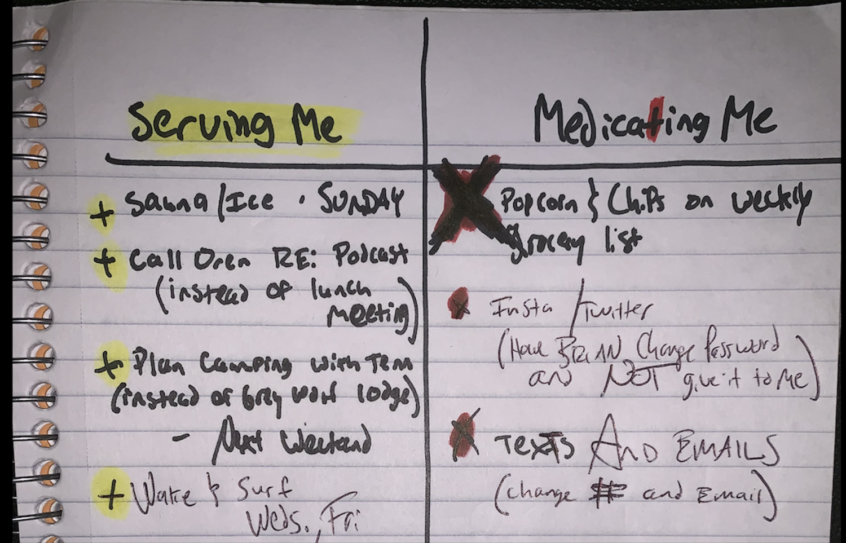 Serving Me
+ Sauna/Ice · SUNDAY
+ Call Oren RE: Podcast
(instead of lunch
Meeting)
+ Plan Camping with Tem
(instead of Grey Wolf lodge)
- Next Weekend
+ Wake & Surf
Weds., Fri
Medicating Me
Popcorn & Chips on weekly
grocery list
Insta/Twitter
(Have BRIAN Change Password
and NOT give it to Me)
TEXTS AND EMAILS
(change # and Email)